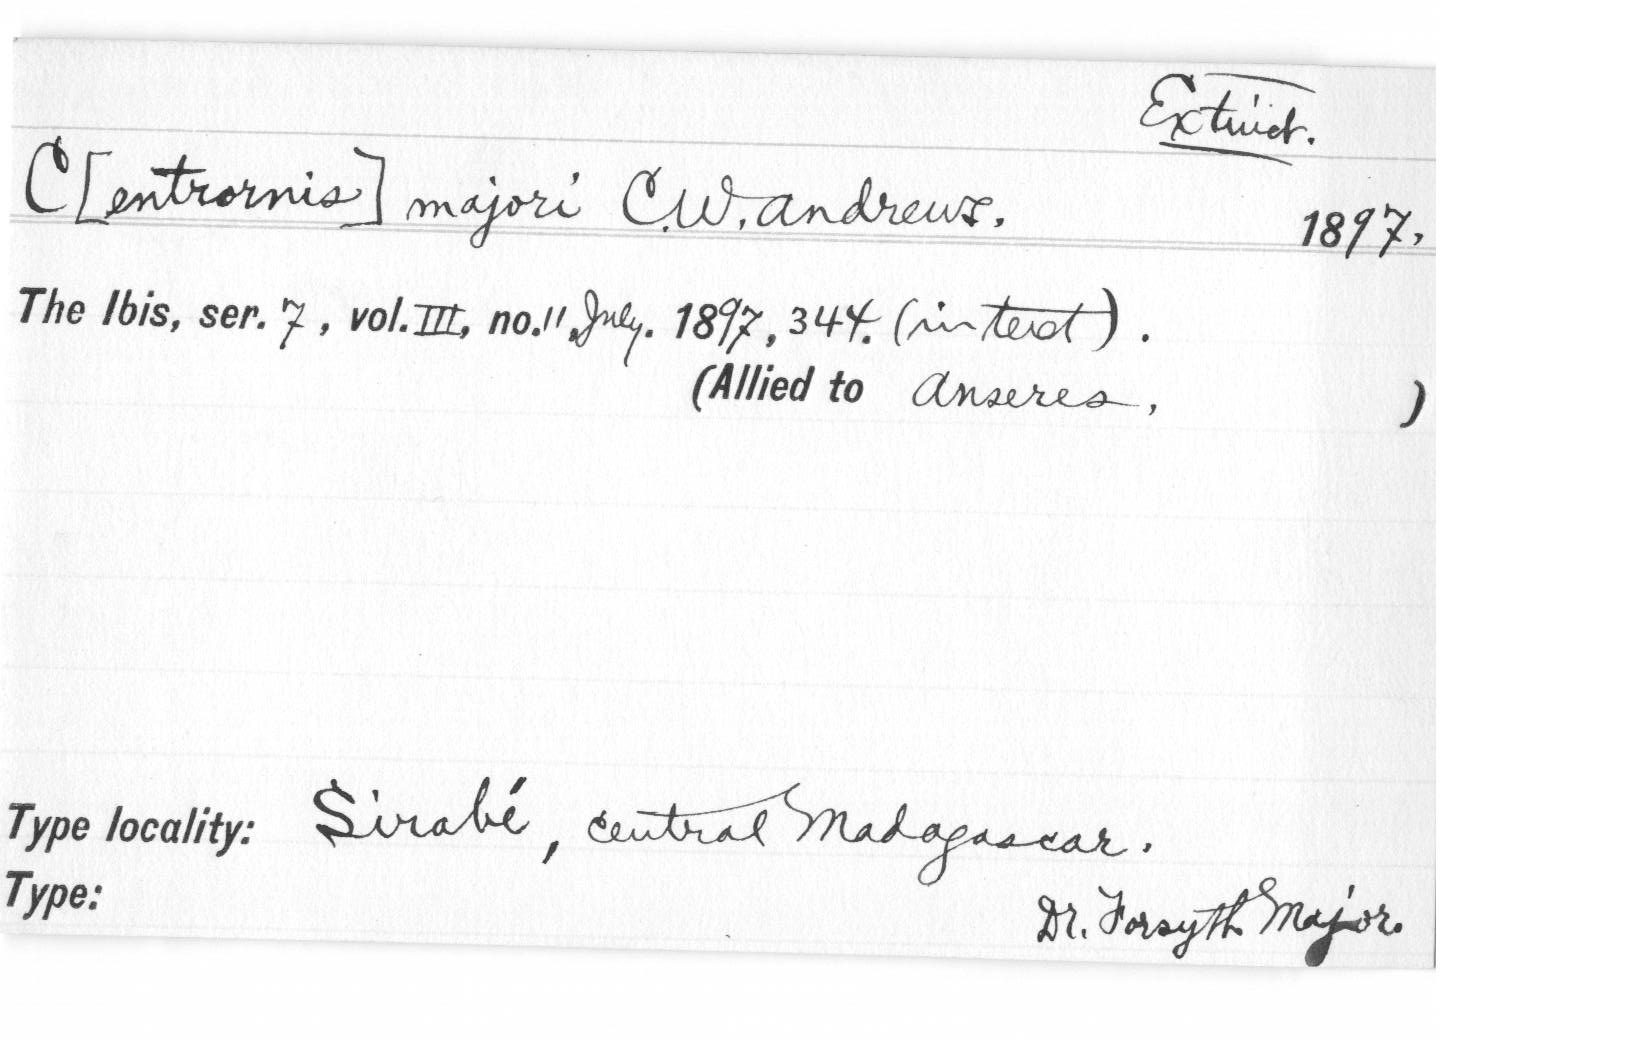 Extinct.
C[entrornis] majori C.W. Andrews. 1897.
The Ibis, ser. 7, vol. III, no. 11, July. 1897, 344. (in text).
(Allied to Anseres. )
Type locality: Sirabé, central Madagascar.
Type:
Dr. Forsyth Major.